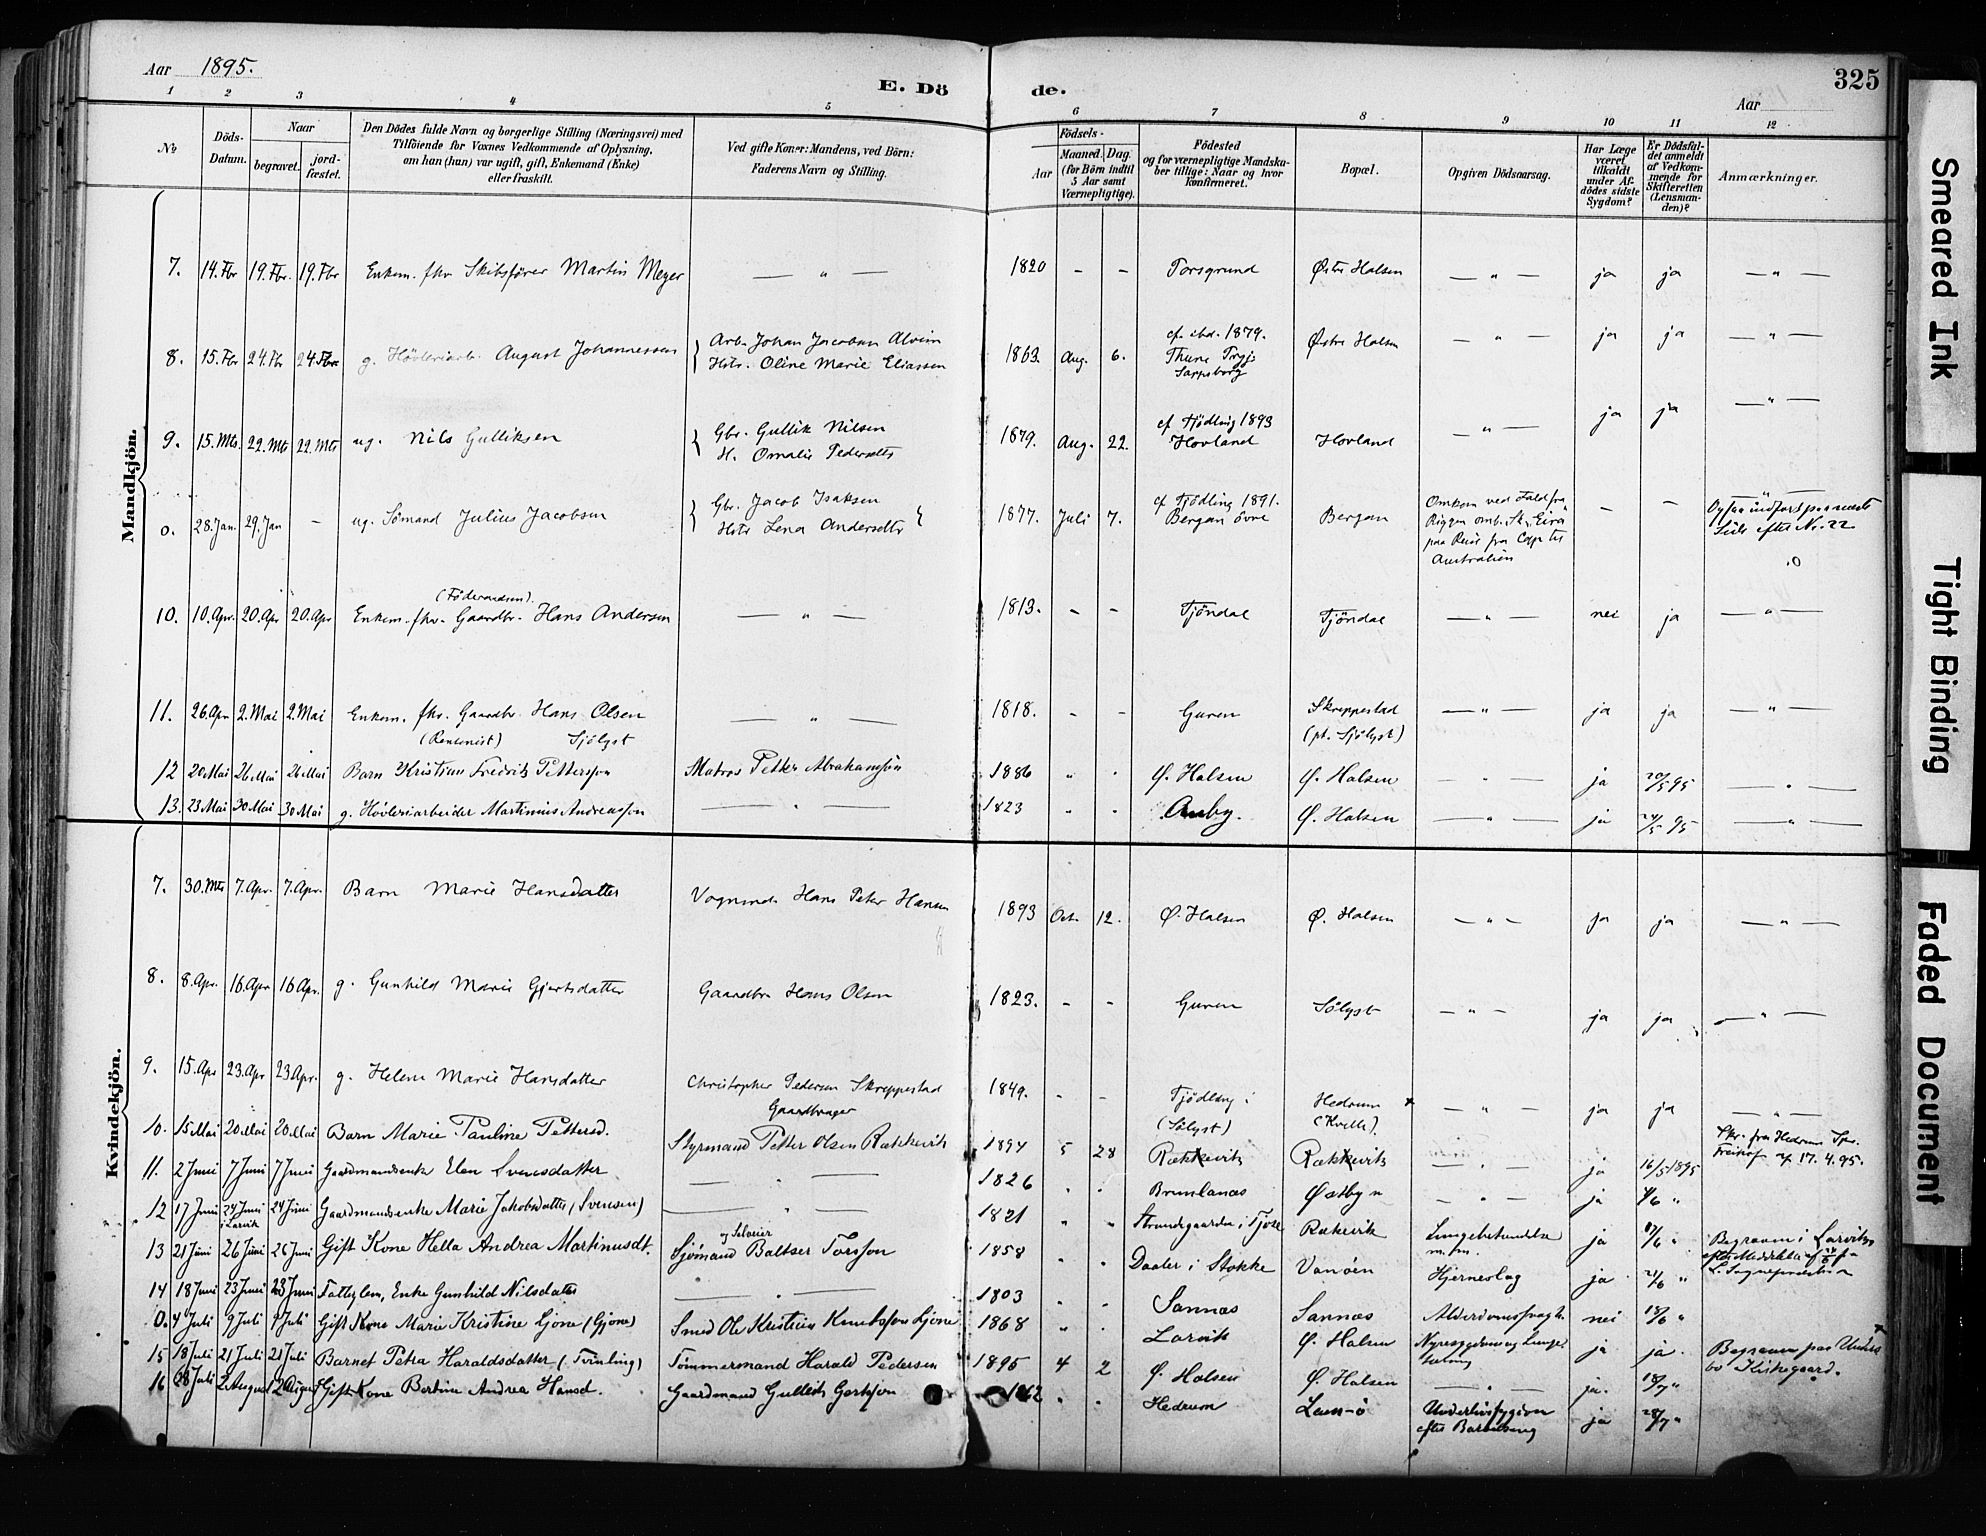 Aar 1895.
E. Döde.
325
Aar
1 2 3 4 5 6 7 8 9 10 11 12
No
Döds-Datum.
Naar
begravet.
jord-fæstet.
Den Dödes fulde Navn og borgerlige Stilling (Næringsvei) med
Tilföiende for Voxnes Vedkommende af Oplysning,
om han (hun) var ugift, gift, Enkemand (Enke)
eller fraskilt.
Ved gifte Koner: Mandens, ved Börn:
Faderens Navn og Stilling.
Födsels-
Aar
Maaned. Dag.
(for Börn indtil
5 Aar samt
Værnepligtige).
Födested
og for værnepligtige Mandska-
ber tillige: Naar og hvor
Konfirmeret.
Bopæl.
Opgiven Dödsaarsag.
Har Læge
været
tilkaldt
under Af-
dödes sidste
Sygdom?
Er Dödsfal-
det anmeldt
af Vedkom-
mende for
Skifteretten
(Lensman-
den)?
Anmærkninger.
Mandkjön.
7. 14. Fbr 19. Fbr. 19. Fbr Enkem. fhv Skibsförer Martin Meyer — " — 1820 - - Porsgrund Østre Halsen — " — ja ja — " —
8. 15. Fbr 24. Fbr 24. Fbr g. Hövleriarb. August Johannessen Arb. Johan Jacobsen Alvim
Hstr. Oline Marie Eliassen 1863. Aug. 6. cf. ibd. 1879.
Thune Prgj.
Sarpsborg Østre Halsen — " — ja ja — " —
9. 15. Mts. 22. Mts 22. Mts ug. Nils Gulliksen Gbr. Gullik Nilsen
H. Omalie Pedersdtr 1879. Aug. 22. cf Tjödling 1893
Hovland Hovland — " — ja ja — " —
0. 28. Jan. 29. Jan - ug. Sömand Julius Jacobsen Gbr. Jacob Isaksen
Hstr Lena Andersdtr 1877. Juli 7. cf Tjödling 1891.
Bergan övre Bergan Omkom ved Fald fra
Riggen omb. Sk. "Eira"
paa Reise fra Cap til
Australien - - Ogsaa indført paa næste
Side efter No. 22
.0
10. 10. Apr. 20. Apr 20. Apr (Föderaadsm).
Enkem. fhv. Gaardbr. Hans Andersen — " — 1813. - - Tjöndal Tjöndal — " — nei ja — " —
11. 26. Apr 2. Mai 2. Mai Enkem. fhv. Gaardbr. Hans Olsen
(Rentenist) Sjölyst — " — 1818. - - Guren Skreppestad
(pt. Sjölyst) — " — ja ja — " —
12 20 Mai 26 Mai 26 Mai Barn Kristian Fredrik Pettersson Matros Petter Abrahamsen 1886 " . Ø. Halsen Ø. Halsen — " — ja 20/5 95 — " —
13. 23 Mai 30 Mai 30 Mai g. Høvleriarbeider Martinius Andreassen — " — 1823 " . Auby. Ø. Halsen — " — ja 24/5 95 — " —
Kvindekjön.
7. 30. Mts 7. Apr. 7. Apr. Barn Marie Hansdatter Vognmd. Hans Peter Hansen 1893 Oct. 12. Ø. Halsen Ø. Halsen — " — ja ja — " —
8. 8. Apr. 16. Apr 16 Apr. g. Gunhild Marie Gjertsdatter Gaardbr Hans Olsen 1823. - - Guren Sölyst — " — ja ja — " —
9. 15. Apr 23. Apr 23 Apr. g. Helene Marie Hansdatter Christopher Pedersen Skreppestad
Gaardbruger 1849. - - Tjödling
(Sölyst) Hedrum
(Kvelle). — " — ja ja — " —
Skr. fra Hedrums Spr.
af 17. 4. 95.
10. 15 Mai 20 Mai 20 Mai Barn Marie Pauline Pettersd. Styrmand Petter Olsen Rækkevik 1894 5 28 Rækkevik Rækkevik — . — ja 16/5 1895
11. 2 Juni 7 Juni 7 Juni Gaardmandsenke Elen Svensdatter — " — 1826 . . Brunlanæs Østbyn — " — ja 4/6 "
12 17 Juni 24 Juni
i Larvik 24 Juni Gaardmandsenke Marie Jakobsdatter (Svensen) — " — 1821 " " Strandgaarden i Tjøse Rækevik Lungebetændelse
m. m. ja /6 "
13 21 Juni 26 Juni 26 Juni Gift Kone Hella Andrea Martinusdt. og Seleier
Sjømand Baltser Torsson 1858 . . Daaler i Stokke Vanöen Hjerneslag ja 21/6 " Begraven i Larvik
14 18 Juni 23 Juni 23 Juni Fattiglem, Enke Gunhild Nilsdatter — " — 1803 . . Sannæs Sannæs Alderdomssvagh. nei 18/6 "
0. 4 Juli 9 Juli 9 Juli Gift Kone Marie Kristine Gjone (Gjøne) Smed Ole Kristian Knutssøn Gjone 1868 " . Larvik Ø. Halsen Nyresygdom og Lunge- ja ja. Begraven paa Unders-
bo Kirkegaard.
15 18 Juli 21 Juli 21 Juli Barnet Petra Haraldsdatter (Tvinling) Tömmermand Harald Pedersen 1895 4 2 Ø. Halsen Ø. Halsen — . — ja. 18/7 "
16 28 Juli 2 August 2 August Gift Kone Bertine Andrea Hansd. Gaardmand Gullik Gertsen 1862 . . Hedrum Lam-ö Underlivssygdom
efter Barselseng ja 28/7 "
Smeared Ink
Tight Binding
Faded Document